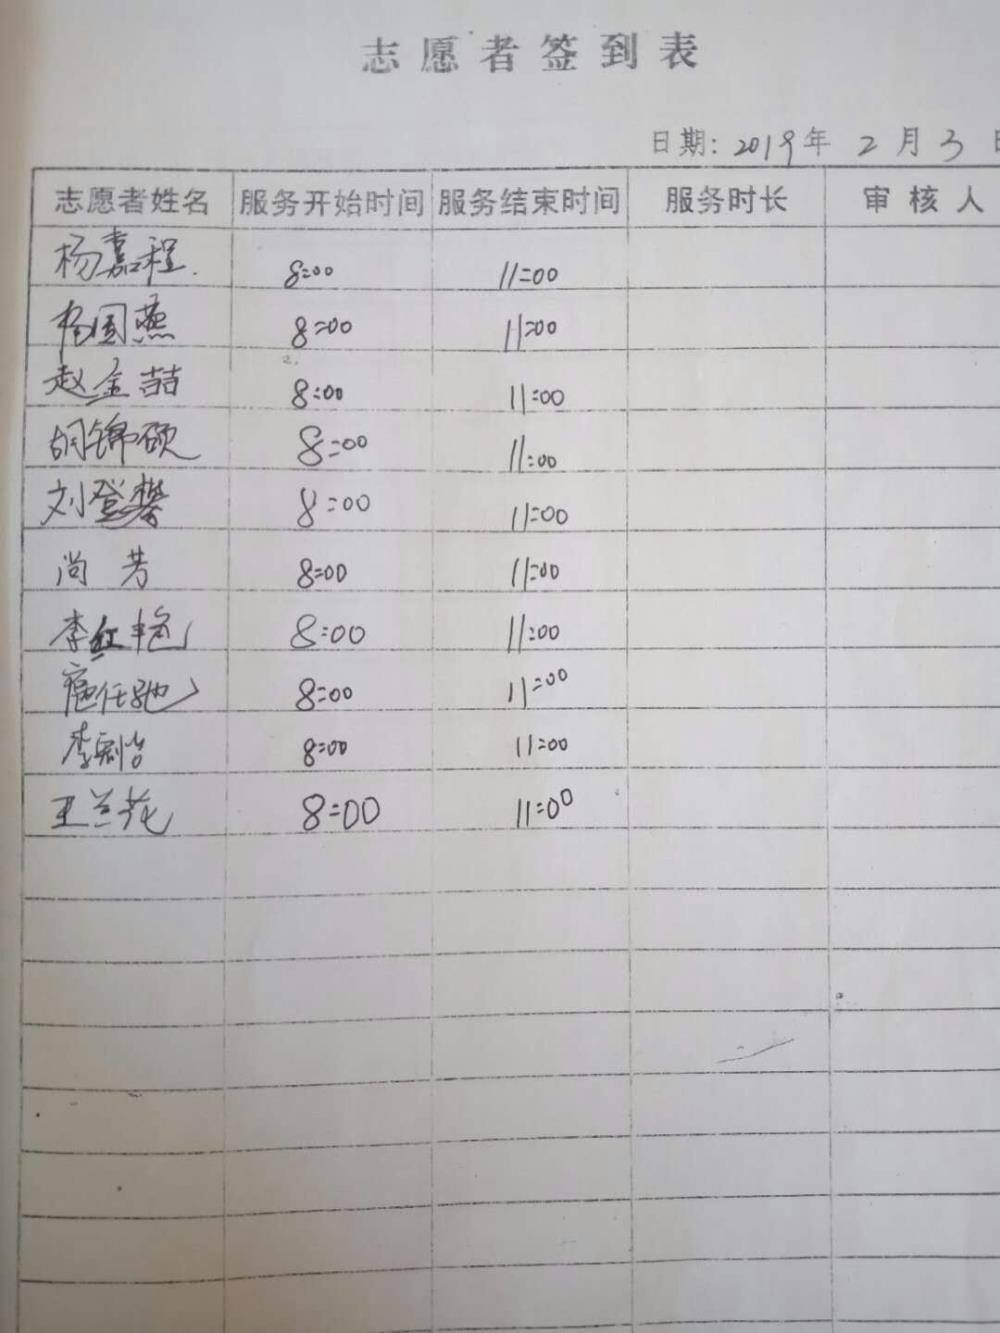 志愿者签到表
日期: 2019年 2月3日
志愿者姓名 服务开始时间 服务结束时间 服务时长 审核人
杨嘉程 8:00 11:00
杨国燕 8:00 11:00
赵金喆 8:00 11:00
胡锦硕 8:00 11:00
刘登攀 8:00 11:00
尚芳 8:00 11:00
李红艳 8:00 11:00
8:00 11:00
8:00 11:00
王兰花 8:00 11:00